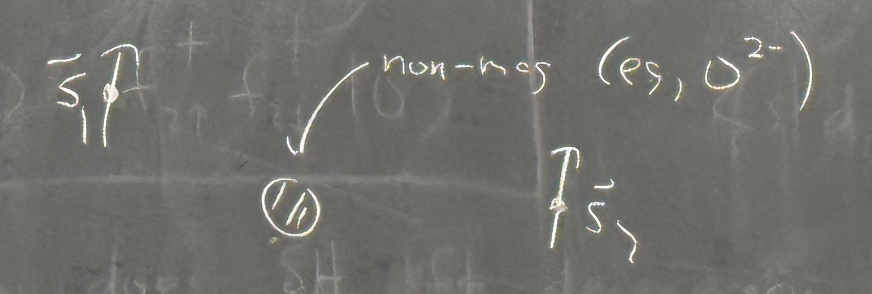 S₁ non-mag (eg, O²⁻)
S₂